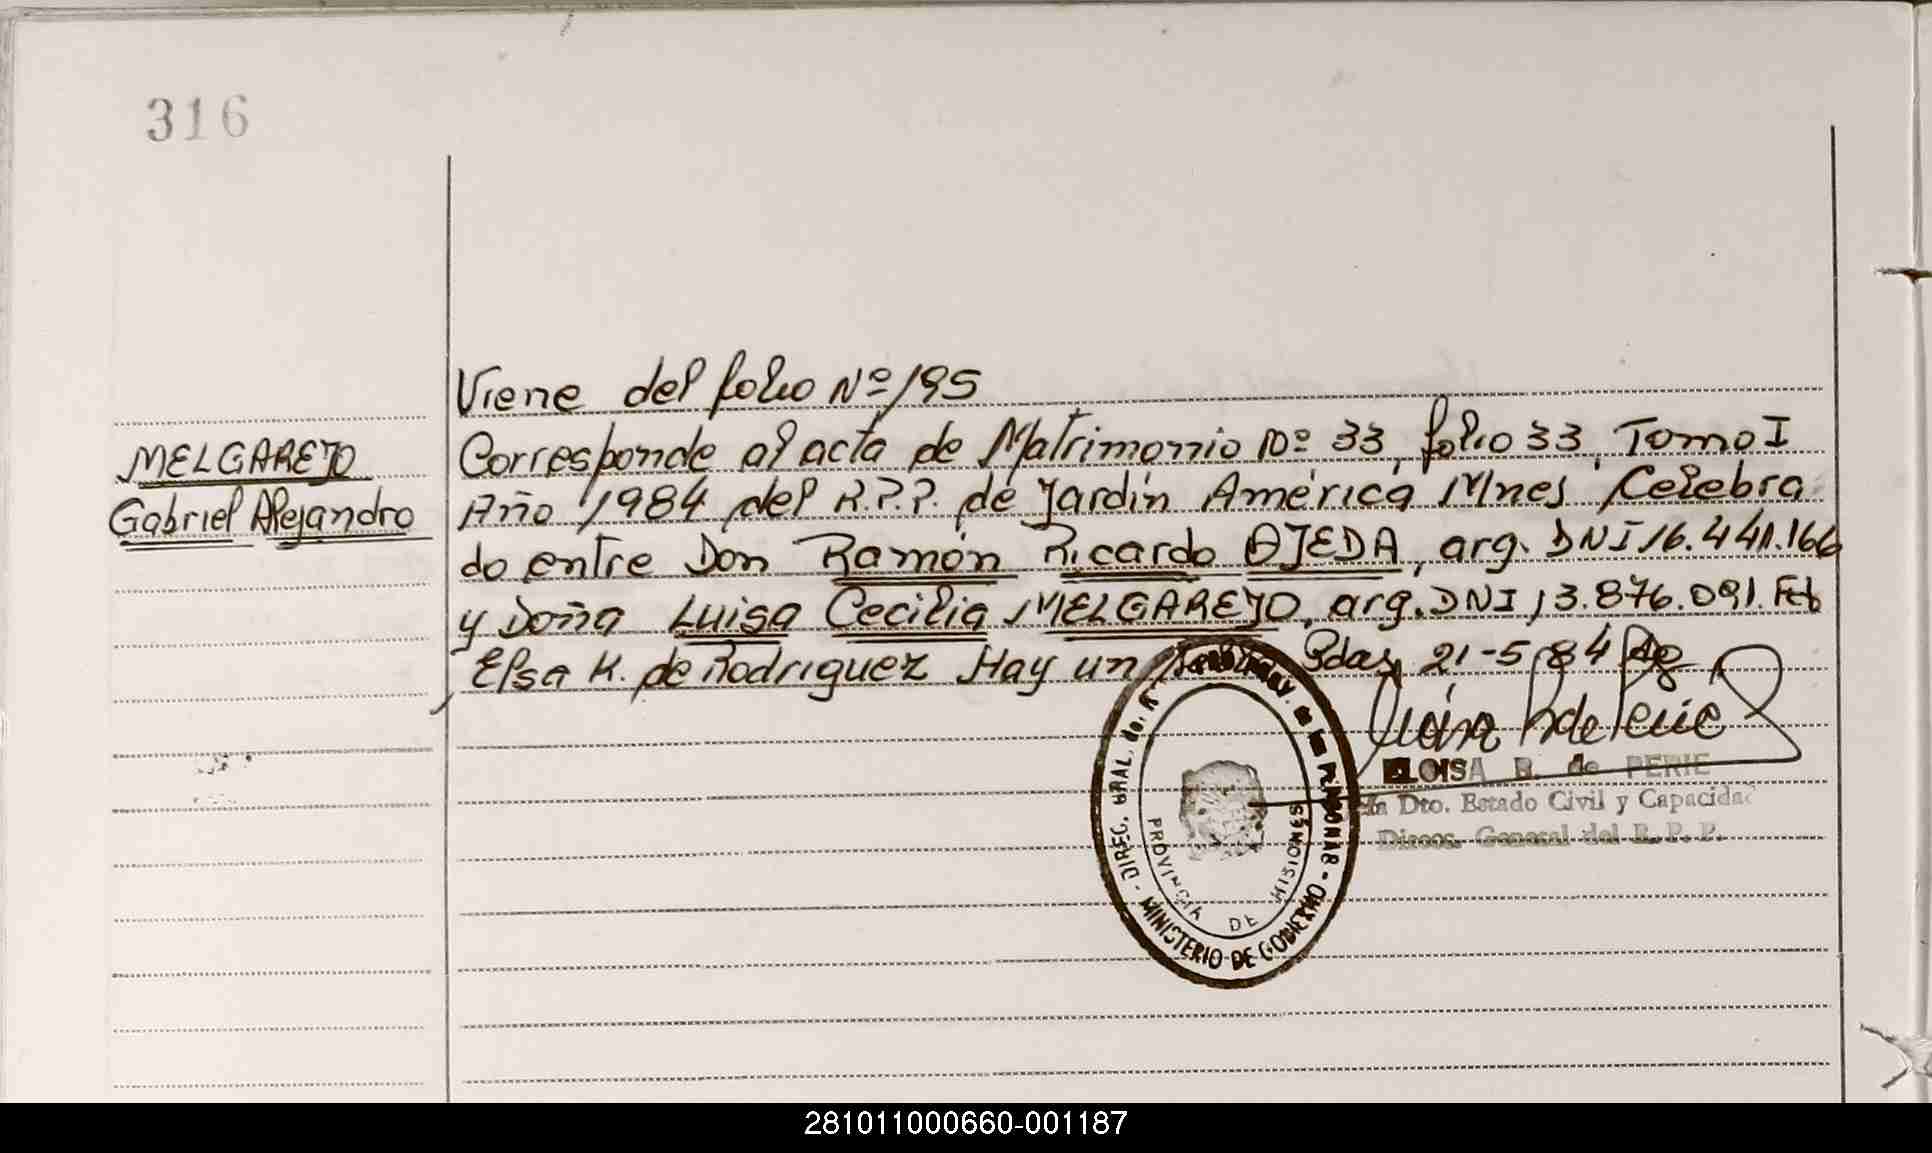 316
Viene del folio Nº 195
MELGAREJO
Gabriel Alejandro
Corresponde al acta de Matrimonio Nº 33, folio 33, Tomo I
Año 1984 del R.P.P. de Jardín América Mnes Celebra
do entre Don Ramón Ricardo OJEDA, arg. DNI 16.441.166
y Doña Luisa Cecilia MELGAREJO, arg. DNI 13.876.091. Feb
Elsa K. de Rodriguez Hay un Pdas, 21-5-84
ELOISA B. de PERIE
Dto. Estado Civil y Capacidad
Direcc. General del R.P.P.
DIREC. GRAL. de las PERSONAS - MINISTERIO DE GOBIERNO -
PROVINCIA DE MISIONES
281011000660-001187